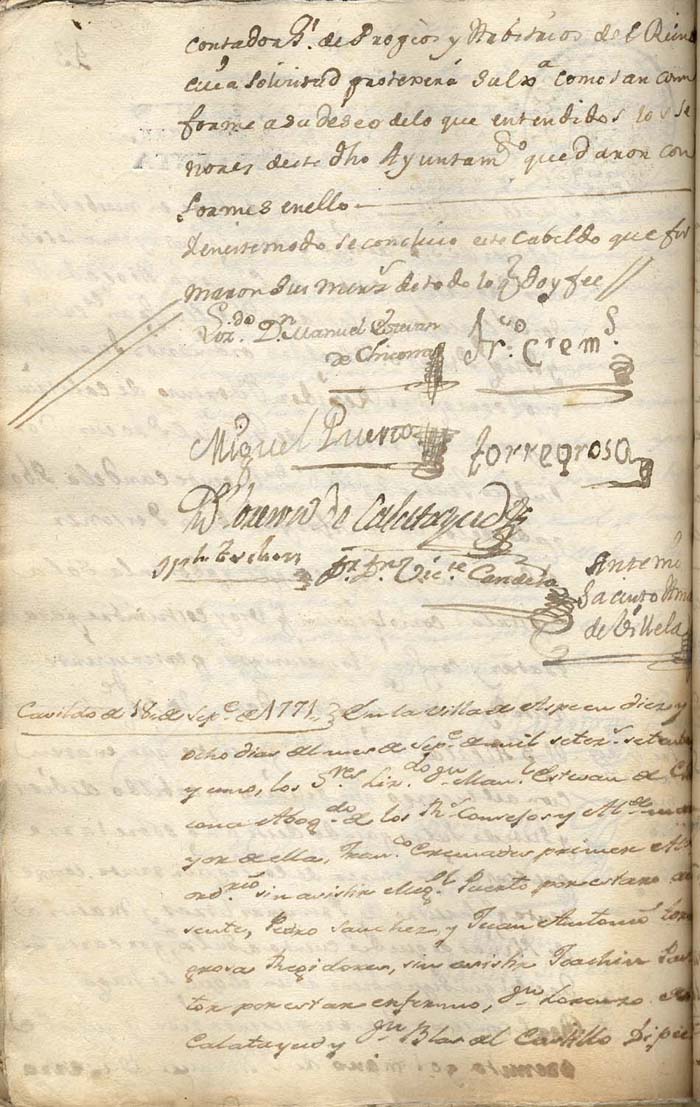 Contador Gl. de Propios y Arbitrios de el Rein
cuia solicitud protexerá
forme a su deseo de lo que entendidos los se
ñores de este dho Ayuntamto quedaron con
formes en ello
Y en este modo se concluio este Cabildo que fir
maron sus mrzs de todo lo q doy fee
Lizdo Dn Manuel Estevan
de Chicona
Frco Crems
Miguel Puerto
Torregrosa
Dn Lorenzo de Calatayud
Dr Dn Victe Candela
Antemi
Jacinto
de Villela
Cavildo de 18 de Sepe de 1771
En la Villa de Aspe en diez y
ocho dias del mes de Sepe de mil setes setenta
y uno, los Sres Lizdo Dn Manl Estevan de Chi
cona Abogdo de los Rs Consejos y Alde ma
yor de ella, Franco Cremades primer Al
ordrio sin asistir Migl Puerto por estar au
sente, Pedro Sanchez, y Juan Antonio Torre
grosa Regidores, sin asistir Joachin Pas
tor por estar enfermo, Dn Lorenzo de
Calatayud y Dn Blas del Castillo Dipu